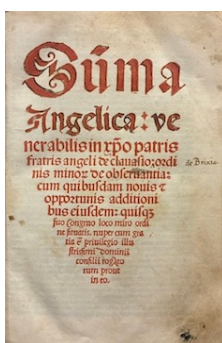 Sūma
Angelica: ve
nerabilis in xp̄o patris
fratris angeli de clauasio: ordi
nis minoꝝ de obseruantia:
cum quibusdam nouis ⁊
opportunis additioni
bus eiusdem: quisqꝫ
suo congruo loco miro ordi
ne situatis. nuper cum gra
tia ⁊ priuilegio illu
domini
consilii
tum prout
in eo.
de Brixia